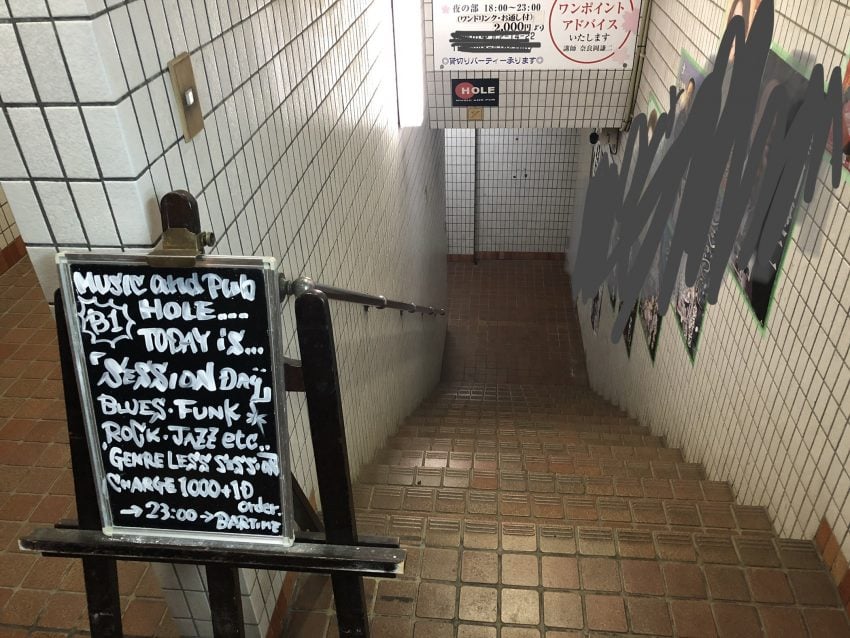 夜の部 18:00〜23:00
(ワンドリンク・お通し付)
2,000円より
◎貸切りパーティー承ります◎
ワンポイント
アドバイス
いたします
講師 奈良岡謙二
HOLE
MUSIC AND PUB
MUSIC and PUB
B1
HOLE...
TODAY is...
「SESSION DAY」
BLUES・FUNK
ROCK・JAZZ etc..
GENRE LESS SESSION
CHARGE 1000+1D
order.
→23:00→BARTIME